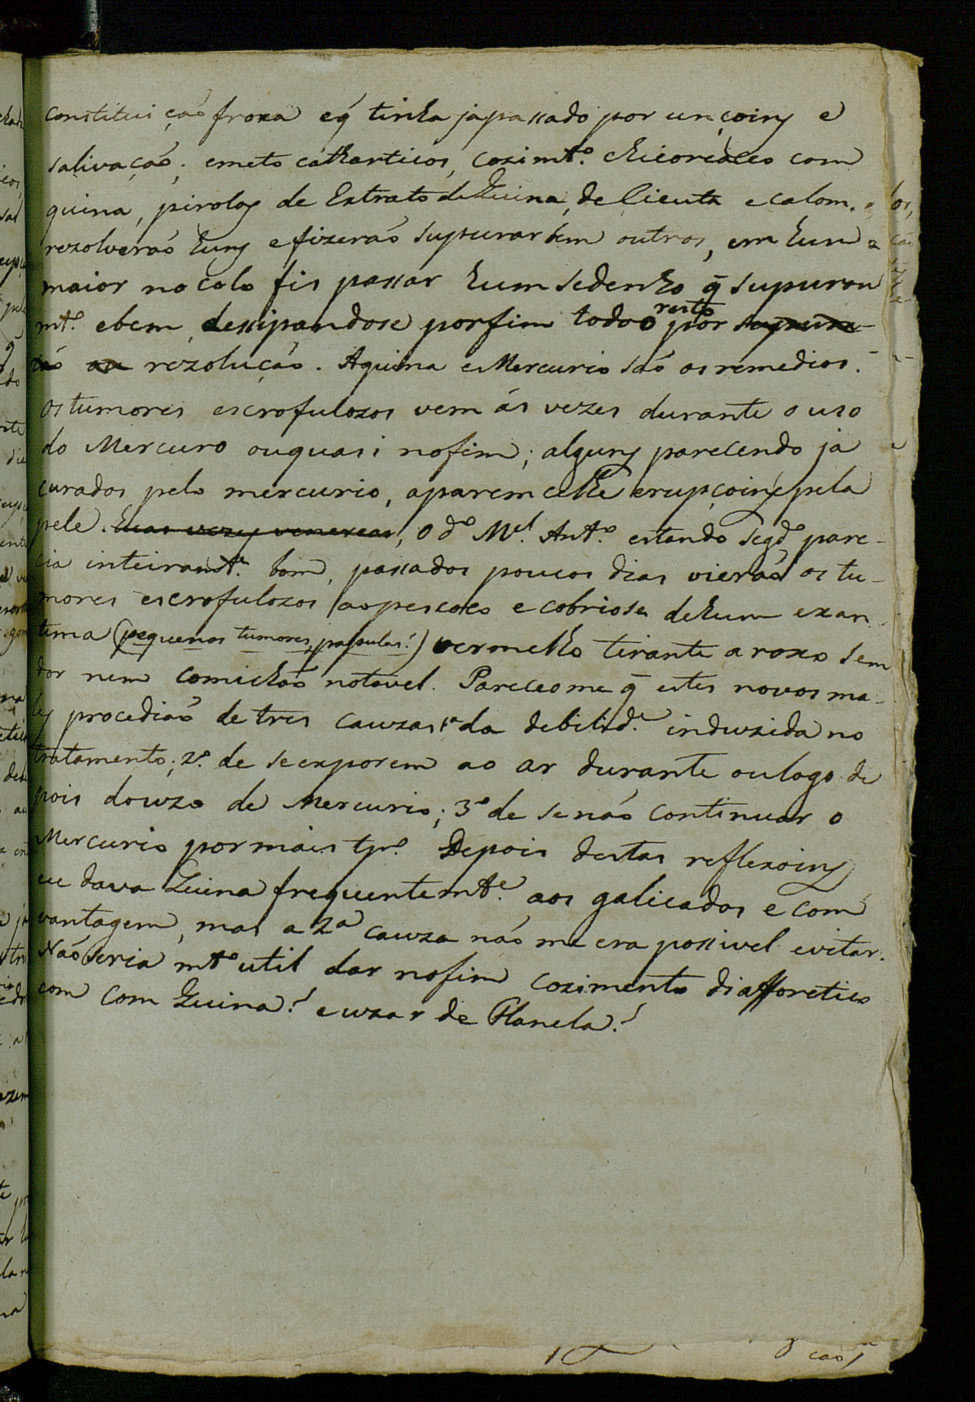 constituição froxa e q̃ tinha ja passado por unçoins e
salivação; emeto catharticos, cozimt.º chicoreaceo com
quina, pirolas de Extrato de Quina, de Cicuta e calom.
rezolverão huns e fizerão supurar bem outros, em hum
maior no colo fis passar hum sedenho q̃ supurou
mt.º e bem, dessipandose por fim todo o resto por supura-
ção ou rezolução. A quina e Mercurio são os remedios.
Os tumores escrofulozos vem ás vezes durante o uso
do Mercuro ou quasi no fim; alguns parecendo ja
curados pelo mercurio, aparemcelhe erupçoins pela
pele. humas vezes venereas, O d.º M.el Ant.º estando segd.º pare-
cia inteiramt.e bom, passados poucos dias vierão os tu-
mores escrofulozos ao pescoco e cobriose de hum exan
tema (pequenos tumores, papoulas?) vermelho tirante a roxo sem
dor nem comichão notavel. Pareceome q̃ estes novos ma-
les procedião de tres cauzas 1.ª da debilid.e induzida no
tratamento; 2.ª de se exporem ao ar durante ou logo de
pois do uzo de Mercurio; 3.ª de se não continuar o
Mercurio por mais tp.º Depois destas reflexoins
eu dava Quina frequentemt.e aos galicados e com
vantagem, mas a 2.ª cauza não me era possivel evitar.
Não seria mt.º util dar no fim cozimento diafforetico
com com Quina? e uzar de flanela?